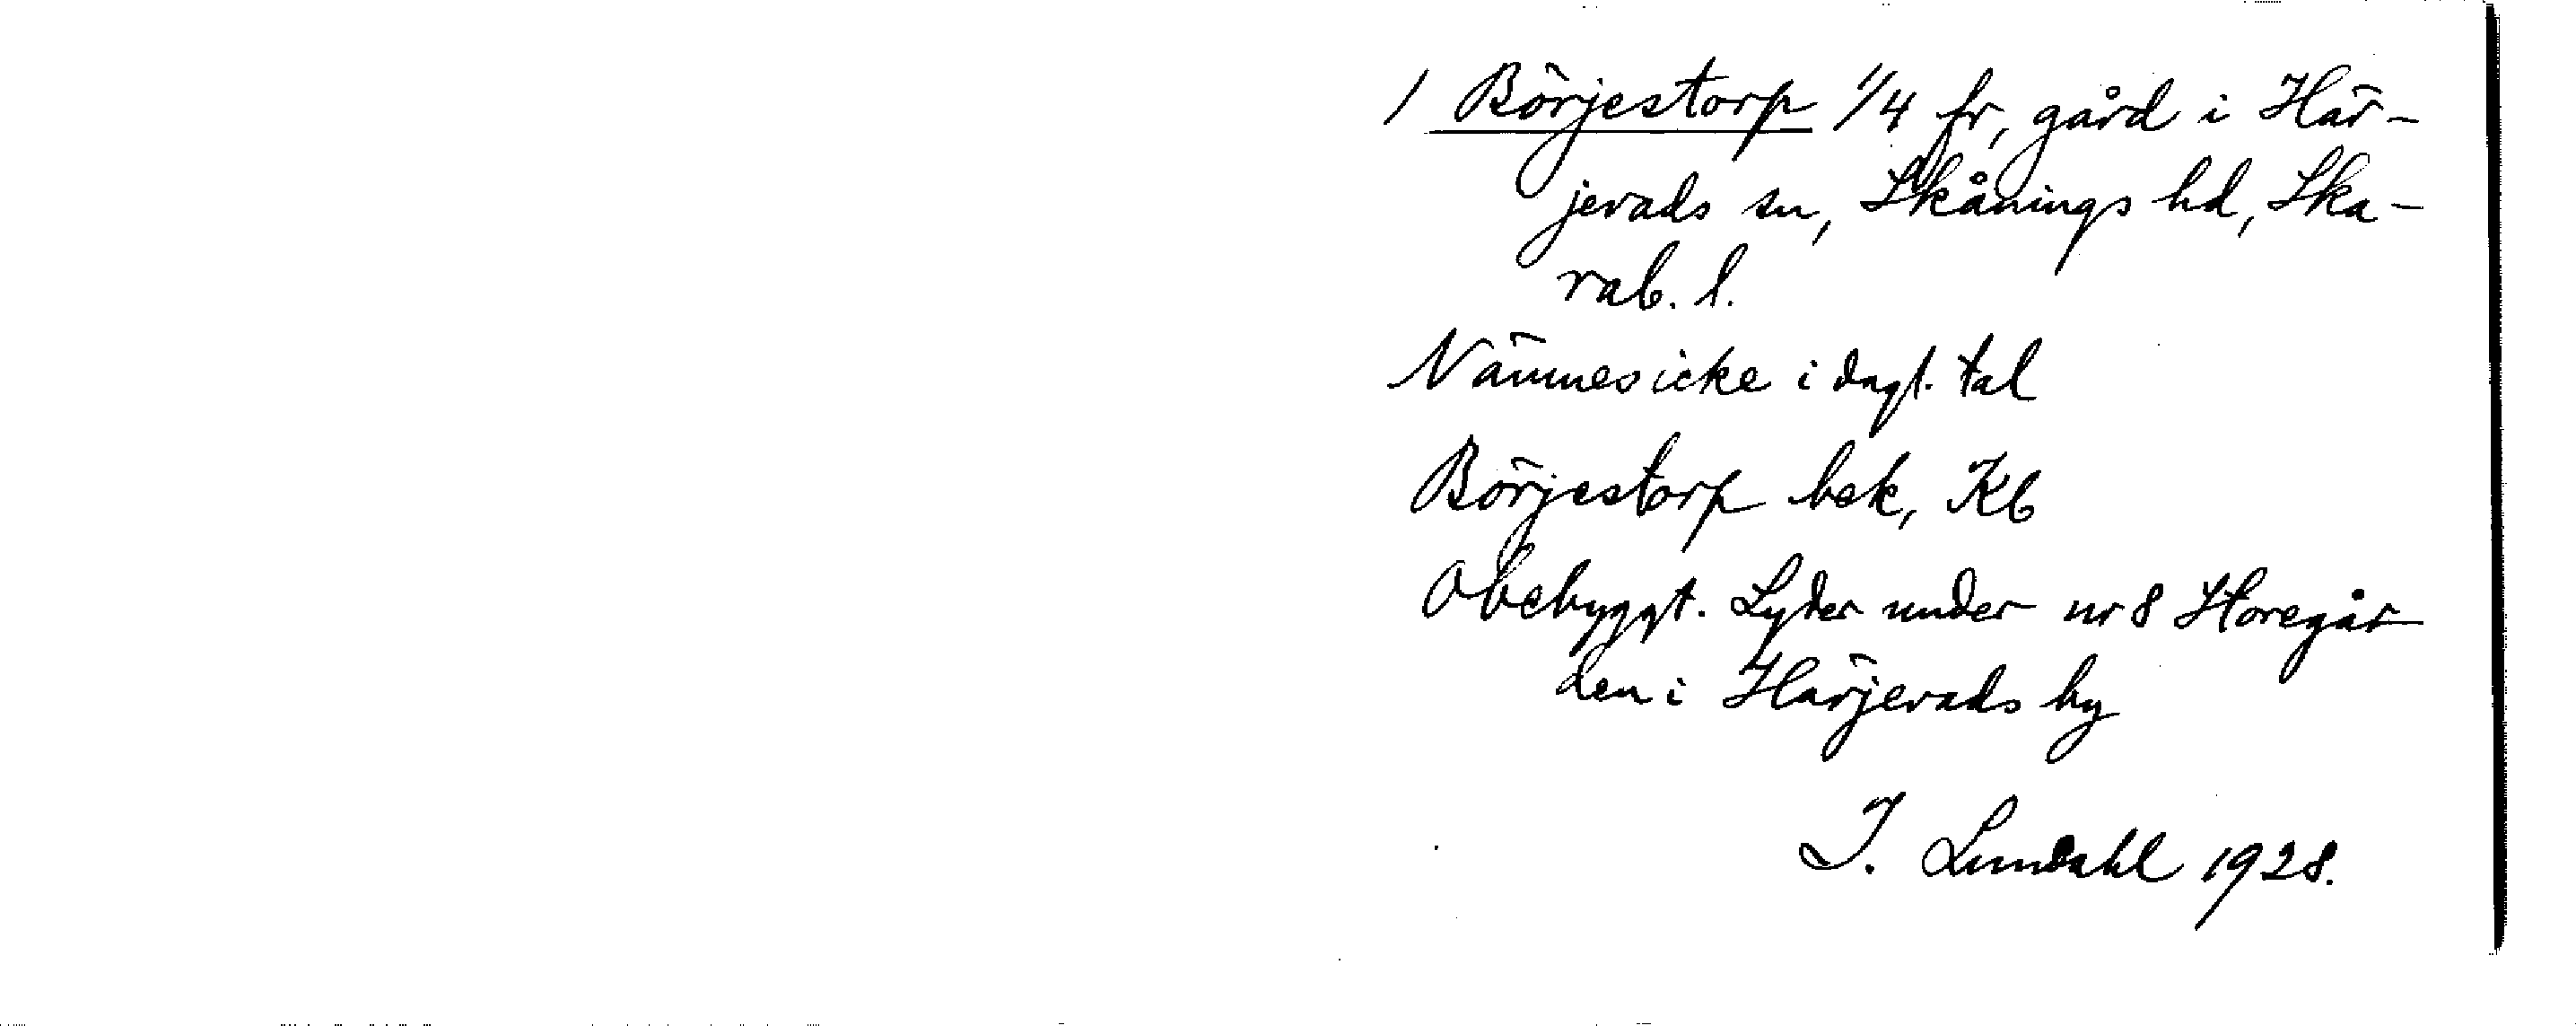 1 Börjestorp 1/4 fr, gård i Här-
jevads sn, Skånings hd, Ska-
rab. l.
Nämnes icke i dagl. tal
Börjestorp bek, Kb
Obebyggt. Lyder under nr 8 Storegår
den i Härjevads by
I. Lundahl 1928.